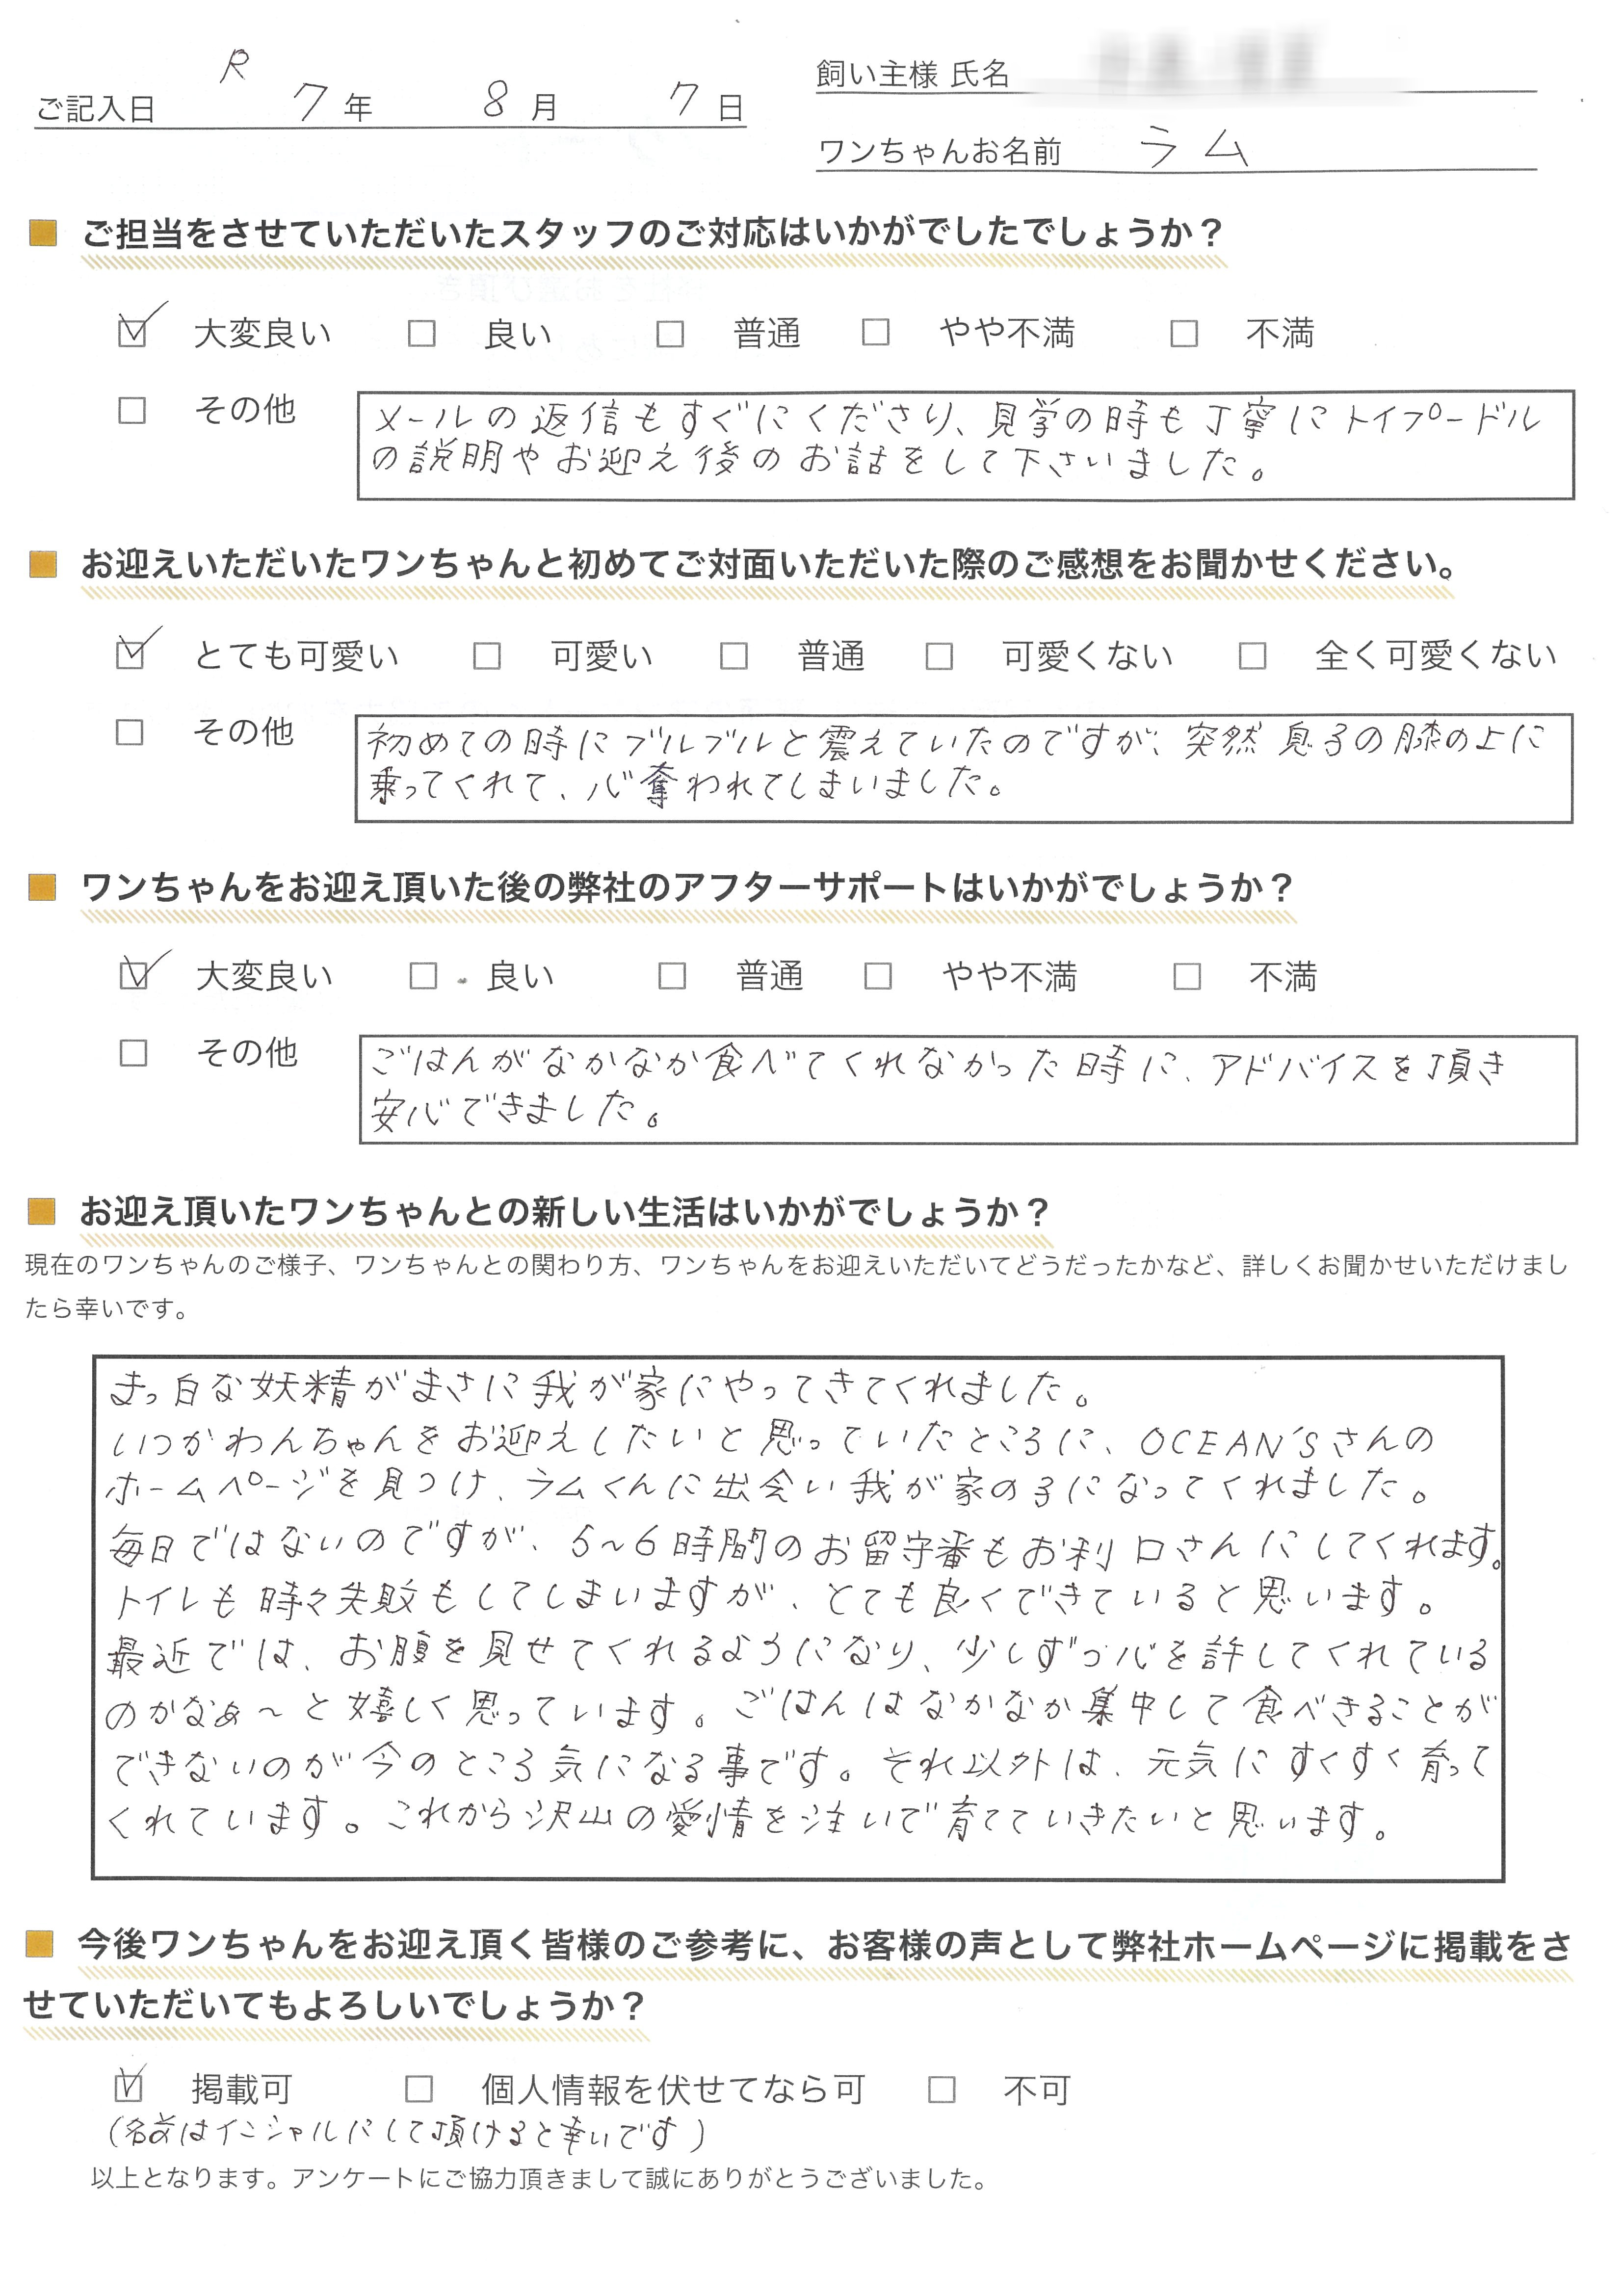 ご記入日 R 7 年 8 月 7 日
飼い主様 氏名
ワンちゃんお名前 ラム
■ ご担当をさせていただいたスタッフのご対応はいかがでしたでしょうか？
☑ 大変良い □ 良い □ 普通 □ やや不満 □ 不満
□ その他
メールの返信もすぐにくださり、見学の時も丁寧にトイプードル
の説明やお迎え後のお話をして下さいました。
■ お迎えいただいたワンちゃんと初めてご対面いただいた際のご感想をお聞かせください。
☑ とても可愛い □ 可愛い □ 普通 □ 可愛くない □ 全く可愛くない
□ その他
初めての時にブルブルと震えていたのですが、突然 息子の膝の上に
乗ってくれて、心奪われてしまいました。
■ ワンちゃんをお迎え頂いた後の弊社のアフターサポートはいかがでしょうか？
☑ 大変良い □ 良い □ 普通 □ やや不満 □ 不満
□ その他
ごはんがなかなか食べてくれなかった時に、アドバイスを頂き
安心できました。
■ お迎え頂いたワンちゃんとの新しい生活はいかがでしょうか？
現在のワンちゃんのご様子、ワンちゃんとの関わり方、ワンちゃんをお迎えいただいてどうだったかなど、詳しくお聞かせいただけまし
たら幸いです。
まっ白な妖精がまさに我が家にやってきてくれました。
いつかわんちゃんをお迎えしたいと思っていたところに、OCEAN'Sさんの
ホームページを見つけ、ラムくんに出会い我が家の子になってくれました。
毎日ではないのですが、5〜6時間のお留守番もお利口さんにしてくれます。
トイレも時々失敗もしてしまいますが、とても良くできていると思います。
最近では、お腹を見せてくれるようになり、少しずつ心を許してくれている
のかなぁ〜と嬉しく思っています。ごはんはなかなか集中して食べきることが
できないのが今のところ気になる事です。それ以外は、元気にすくすく育って
くれています。これから沢山の愛情を注いで育てていきたいと思います。
■ 今後ワンちゃんをお迎え頂く皆様のご参考に、お客様の声として弊社ホームページに掲載をさ
せていただいてもよろしいでしょうか？
☑ 掲載可 □ 個人情報を伏せてなら可 □ 不可
(名前はイニシャルにして頂けると幸いです)
以上となります。アンケートにご協力頂きまして誠にありがとうございました。